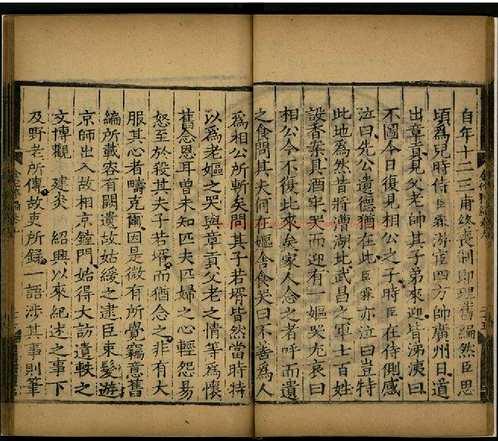 自年十二三甫終喪制即理舊編然臣思
頃爲兒時侍臣霖游宦四方帥廣州日道
出章貢父老帥其子弟來迎皆涕洟曰
不圖今日復見相公之子時臣在侍側感
泣曰先公遺德猶在此臣霖亦泣曰豈特
此地爲然昔將漕湖北武昌之軍士百姓
設香案具酒牢哭而迎有一嫗哭尤哀曰
相公今不復此來矣家人念之者呼而遺
之食問其夫何在嫗舍食哭曰不善爲人
爲相公所斬矣問其子若壻皆然當時特
以爲老嫗之哭與章貢父老之情等爲懷
舊念恩耳曾未知匹夫匹婦之心輕怨易
怒至於殺其夫子若壻而猶念之非有大
服其心者疇克爾因是微有所覺竊意舊
編所載容有闕遺故姑緩之逮臣束髮游
京師出入故相京鏜門始得大訪遺軼之
文博觀 建炎 紹興以來紀述之事下
及野老所傳故吏所錄一語涉其事則筆